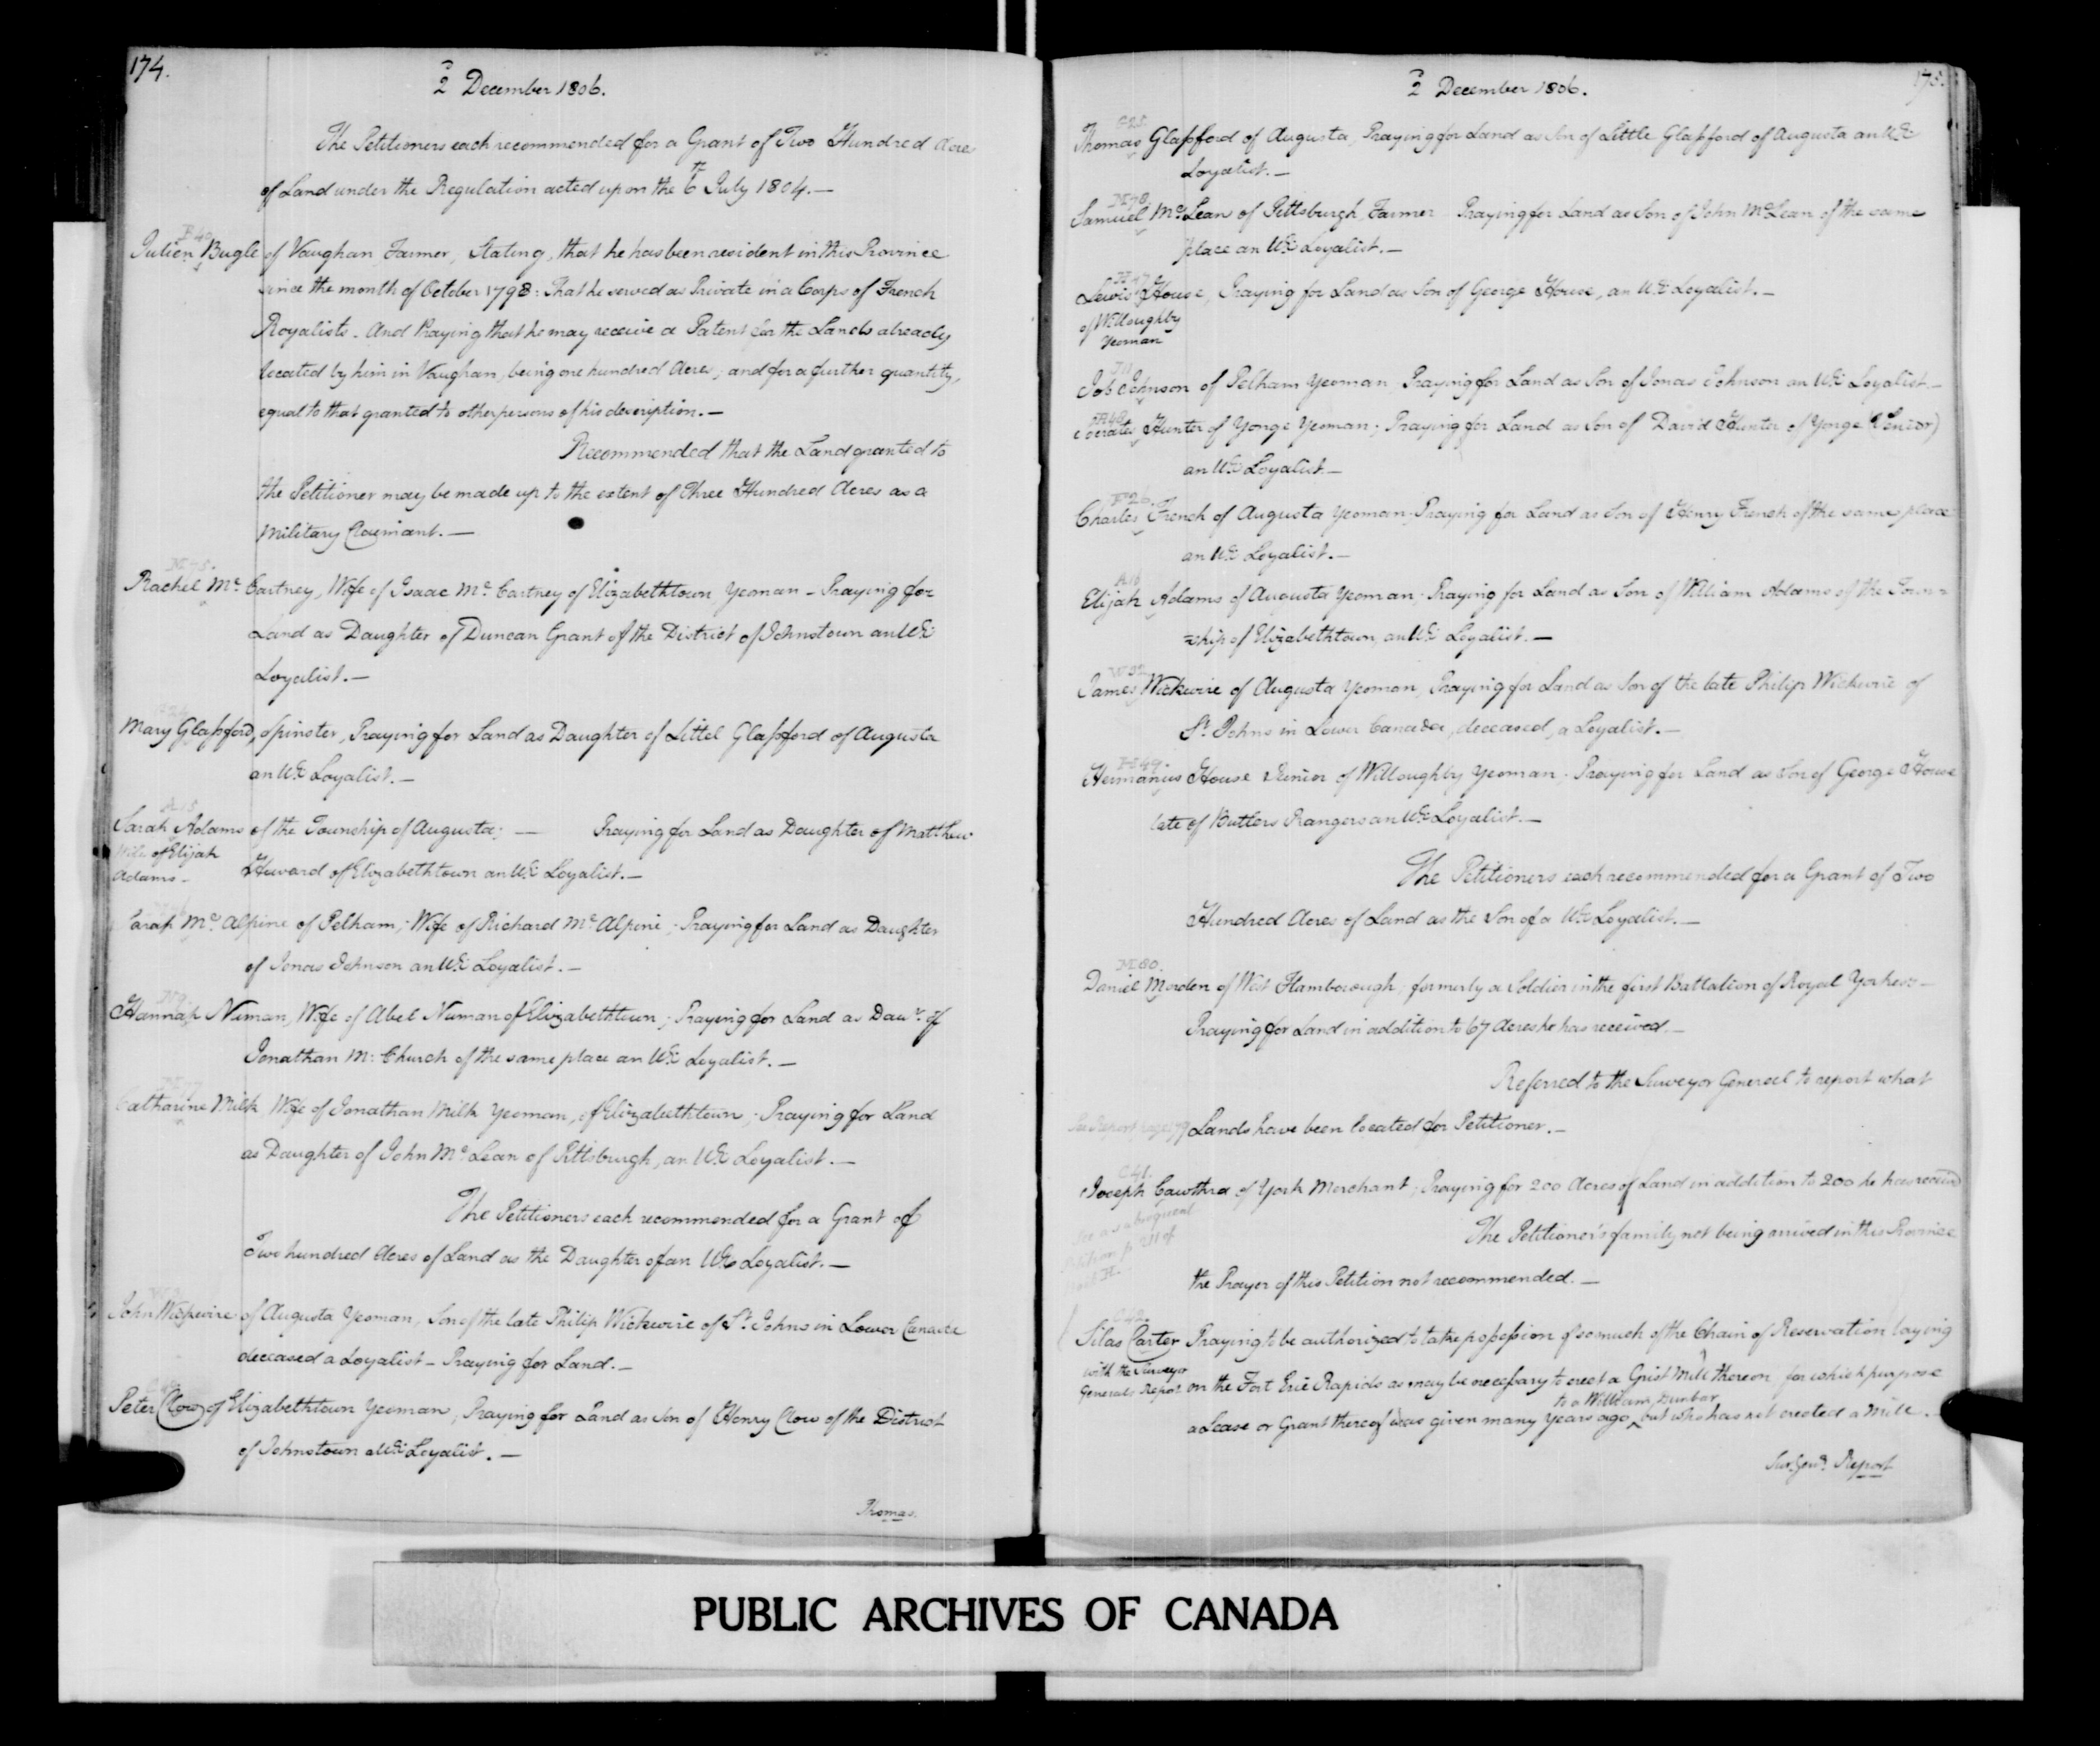 174.
2 December 1806.
The Petitioners each recommended for a Grant of Two Hundred Acre
of Land under the Regulation acted upon the 6th July 1804.—
B 40
Julien Bugle of Vaughan Farmer, Stating, that he has been resident in this Province
since the month of October 1798: That he served as Private in a Corps of French
Royalists. And Praying that he may receive a Patent for the Lands already
located by him in Vaughan, being one hundred Acres; and for a further quantity,
equal to that granted to other persons of his description.—
Recommended that the Land granted to
the Petitioner may be made up to the extent of three Hundred Acres as a
Military Claimant.—
M 75.
Rachel Mc Cartney, Wife of Isaac Mc Cartney of Elizabethtown, Yeoman – Praying for
Land as Daughter of Duncan Grant of the District of Johnstown an UE
Loyalist.—
Mary Glassford, Spinster, Praying for Land as Daughter of Littel Glassford of Augusta
an UE Loyalist.—
A 15.
Sarah Adams of the Township of Augusta; — Praying for Land as Daughter of Matthew
Wife of Elijah
Adams –
Howard of Elizabethtown an UE Loyalist.—
Sarah Mc Alpine of Pelham; Wife of Richard Mc Alpine; Praying for Land as Daughter
of Jonas Johnson an UE Loyalist.—
N 9.
Hannah Numan, Wife of Abel Numan of Elizabethtown; Praying for Land as Daur. of
Jonathan M: Church of the same place an UE Loyalist.—
M 77
Catharine Milk Wife of Jonathan Milk Yeoman, of Elizabethtown; Praying for Land
as Daughter of John Mc Lean of Pittsburgh, an UE Loyalist.—
The Petitioners each recommended for a Grant of
Two hundred Acres of Land as the Daughter of an UE Loyalist.—
John Wickwire of Augusta Yeoman, Son of the late Philip Wickwire of St. Johns in Lower Canada
deceased a Loyalist – Praying for Land.—
Peter Clow of Elizabethtown Yeoman; Praying for Land as Son of Henry Clow of the District
of Johnstown a UE Loyalist.—
Thomas.
2 December 1806.
175.
G 25.
Thomas Glassford of Augusta, Praying for Land as Son of Little Glassford of Augusta an UE
Loyalist.—
M 78.
Samuel Mc Lean of Pittsburgh, Farmer Praying for Land as Son of John McLean of the same
place an UE Loyalist.—
H 47
Lewis House, Praying for Land as Son of George House, an UE Loyalist.—
of Willoughby
Yeoman
J 11
Job Johnson of Pelham Yeoman, Praying for Land as Son of Jonas Johnson an UE Loyalist.—
H 48
Hunter of Yonge Yeoman; Praying for Land as Son of David Hunter of Yonge (Senior)
an UE Loyalist.—
F 26
Charles French of Augusta Yeoman; Praying for Land as Son of Henry French of the same place
an UE Loyalist.—
A 16
Elijah Adams of Augusta Yeoman; Praying for Land as Son of William Adams of the Town=
=ship of Elizabethtown, an UE Loyalist.—
W 92
James Wickwire of Augusta Yeoman, Praying for Land as Son of the late Philip Wickwire of
St. Johns in Lower Canada, deceased, a Loyalist.—
H 49.
Hermanus House Junior of Willoughby Yeoman; Praying for Land as Son of George House
late of Butlers Rangers an UE Loyalist.—
The Petitioners each recommended for a Grant of Two
Hundred Acres of Land as the Son of a UE Loyalist.—
M 80.
Daniel Morden of West Flamborough; formerly a Soldier in the first Battalion of Royal Yorkers—
Praying for Land in addition to 67 Acres he has received.—
Referred to the Surveyor General to report what
See Report page 179
Lands have been located for Petitioner.—
C 41.
Joseph Cawthra of York Merchant; Praying for 200 Acres of Land in addition to 200 he has received
See a subsequent
Petition p. of
Book H.
The Petitioner's family not being arrived in this Province
the Prayer of this Petition not recommended.—
C 42.
Silas Carter Praying to be authorized to take possession of so much of the Chain of Reservation laying
with the Surveyor
Generals Report
on the Fort Erie Rapids as may be necessary to erect a Grist Mill thereon, for which purpose
to a William Dunbar
a Lease or Grant thereof was given many years ago, but who has not erected a Mill.—
Sur. Genls. Report
PUBLIC ARCHIVES OF CANADA